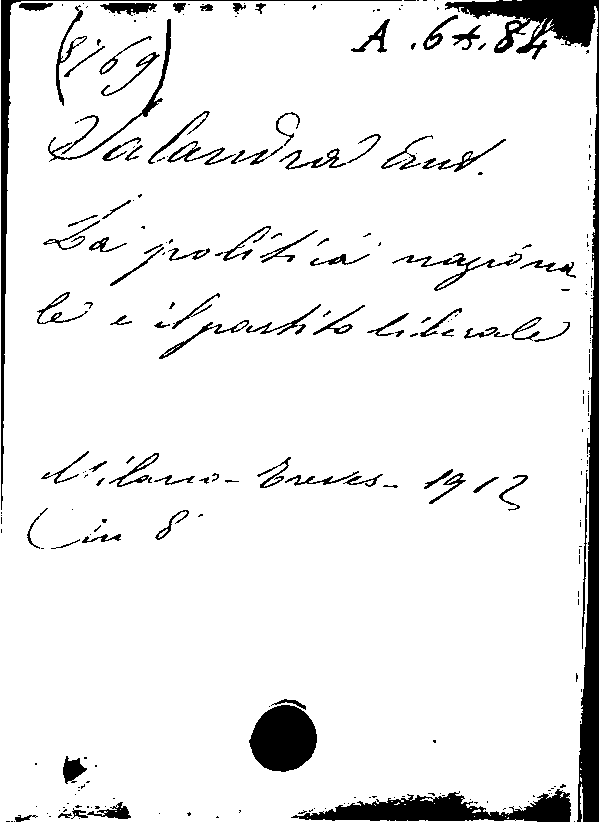 (8769)
A .64.84
Salandra Ant.
La politica naziona-
le e il partito liberale
Milano - Treves - 1912
(in 8°